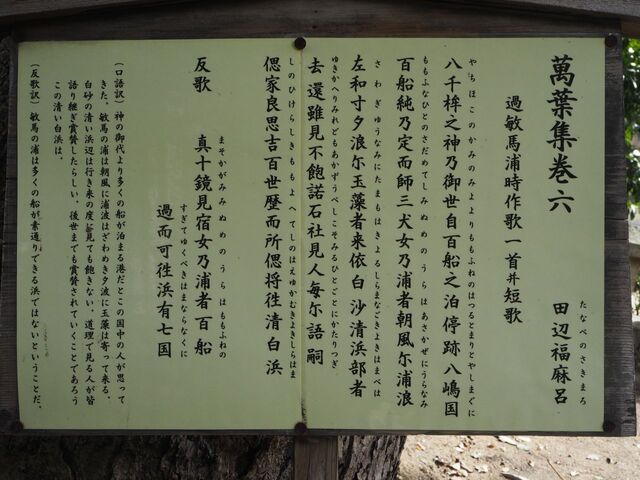 萬葉集巻六
田辺福麻呂
たなべのさきまろ
過敏馬浦時作歌一首并短歌
やちほこのかみのみよよりももふねのはつるとまりとやしまぐに
八千桙之神乃御世自百船之泊停跡八嶋国
ももふなひとのさだめてしみぬめのうらはあさかぜにうらなみ
百船純乃定而師三犬女乃浦者朝風尓浦浪
さわぎゆうなみにたまもはきよるしらまなごきよきはまべは
左和寸夕浪尓玉藻者来依白沙清浜部者
ゆきかへりみれどもあかずうべしこそみるひとごとにかたりつぎ
去還雖見不飽諾石社見人毎尓語嗣
しのひけらしきももよへてしのはえゆかむきよきしらはま
偲家良思吉百世歴而所偲将徃清白浜
反歌
まそかがみみぬめのうらはももふねの
真十鏡見宿女乃浦者百船
すぎてゆくべきはまならなくに
過而可徃浜有七国
（口語訳）神の御代より多くの船が泊まる港だとこの国中の人が思って
きた、敏馬の浦は朝風に浦波はざわめき夕波に玉藻は寄って来る、
白砂の清い浜辺は行き来の度に見ても飽きない、道理で見る人が皆
語り継ぎ賞賛したらしい、後世までも賞賛されていくことであろう
この清い白浜は。
（反歌訳）敏馬の浦は多くの船が素通りできる浜ではないということだ。